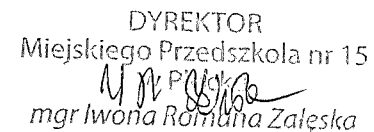 DYREKTOR
Miejskiego Przedszkola nr 15
mgr Iwona Romana Zaleska